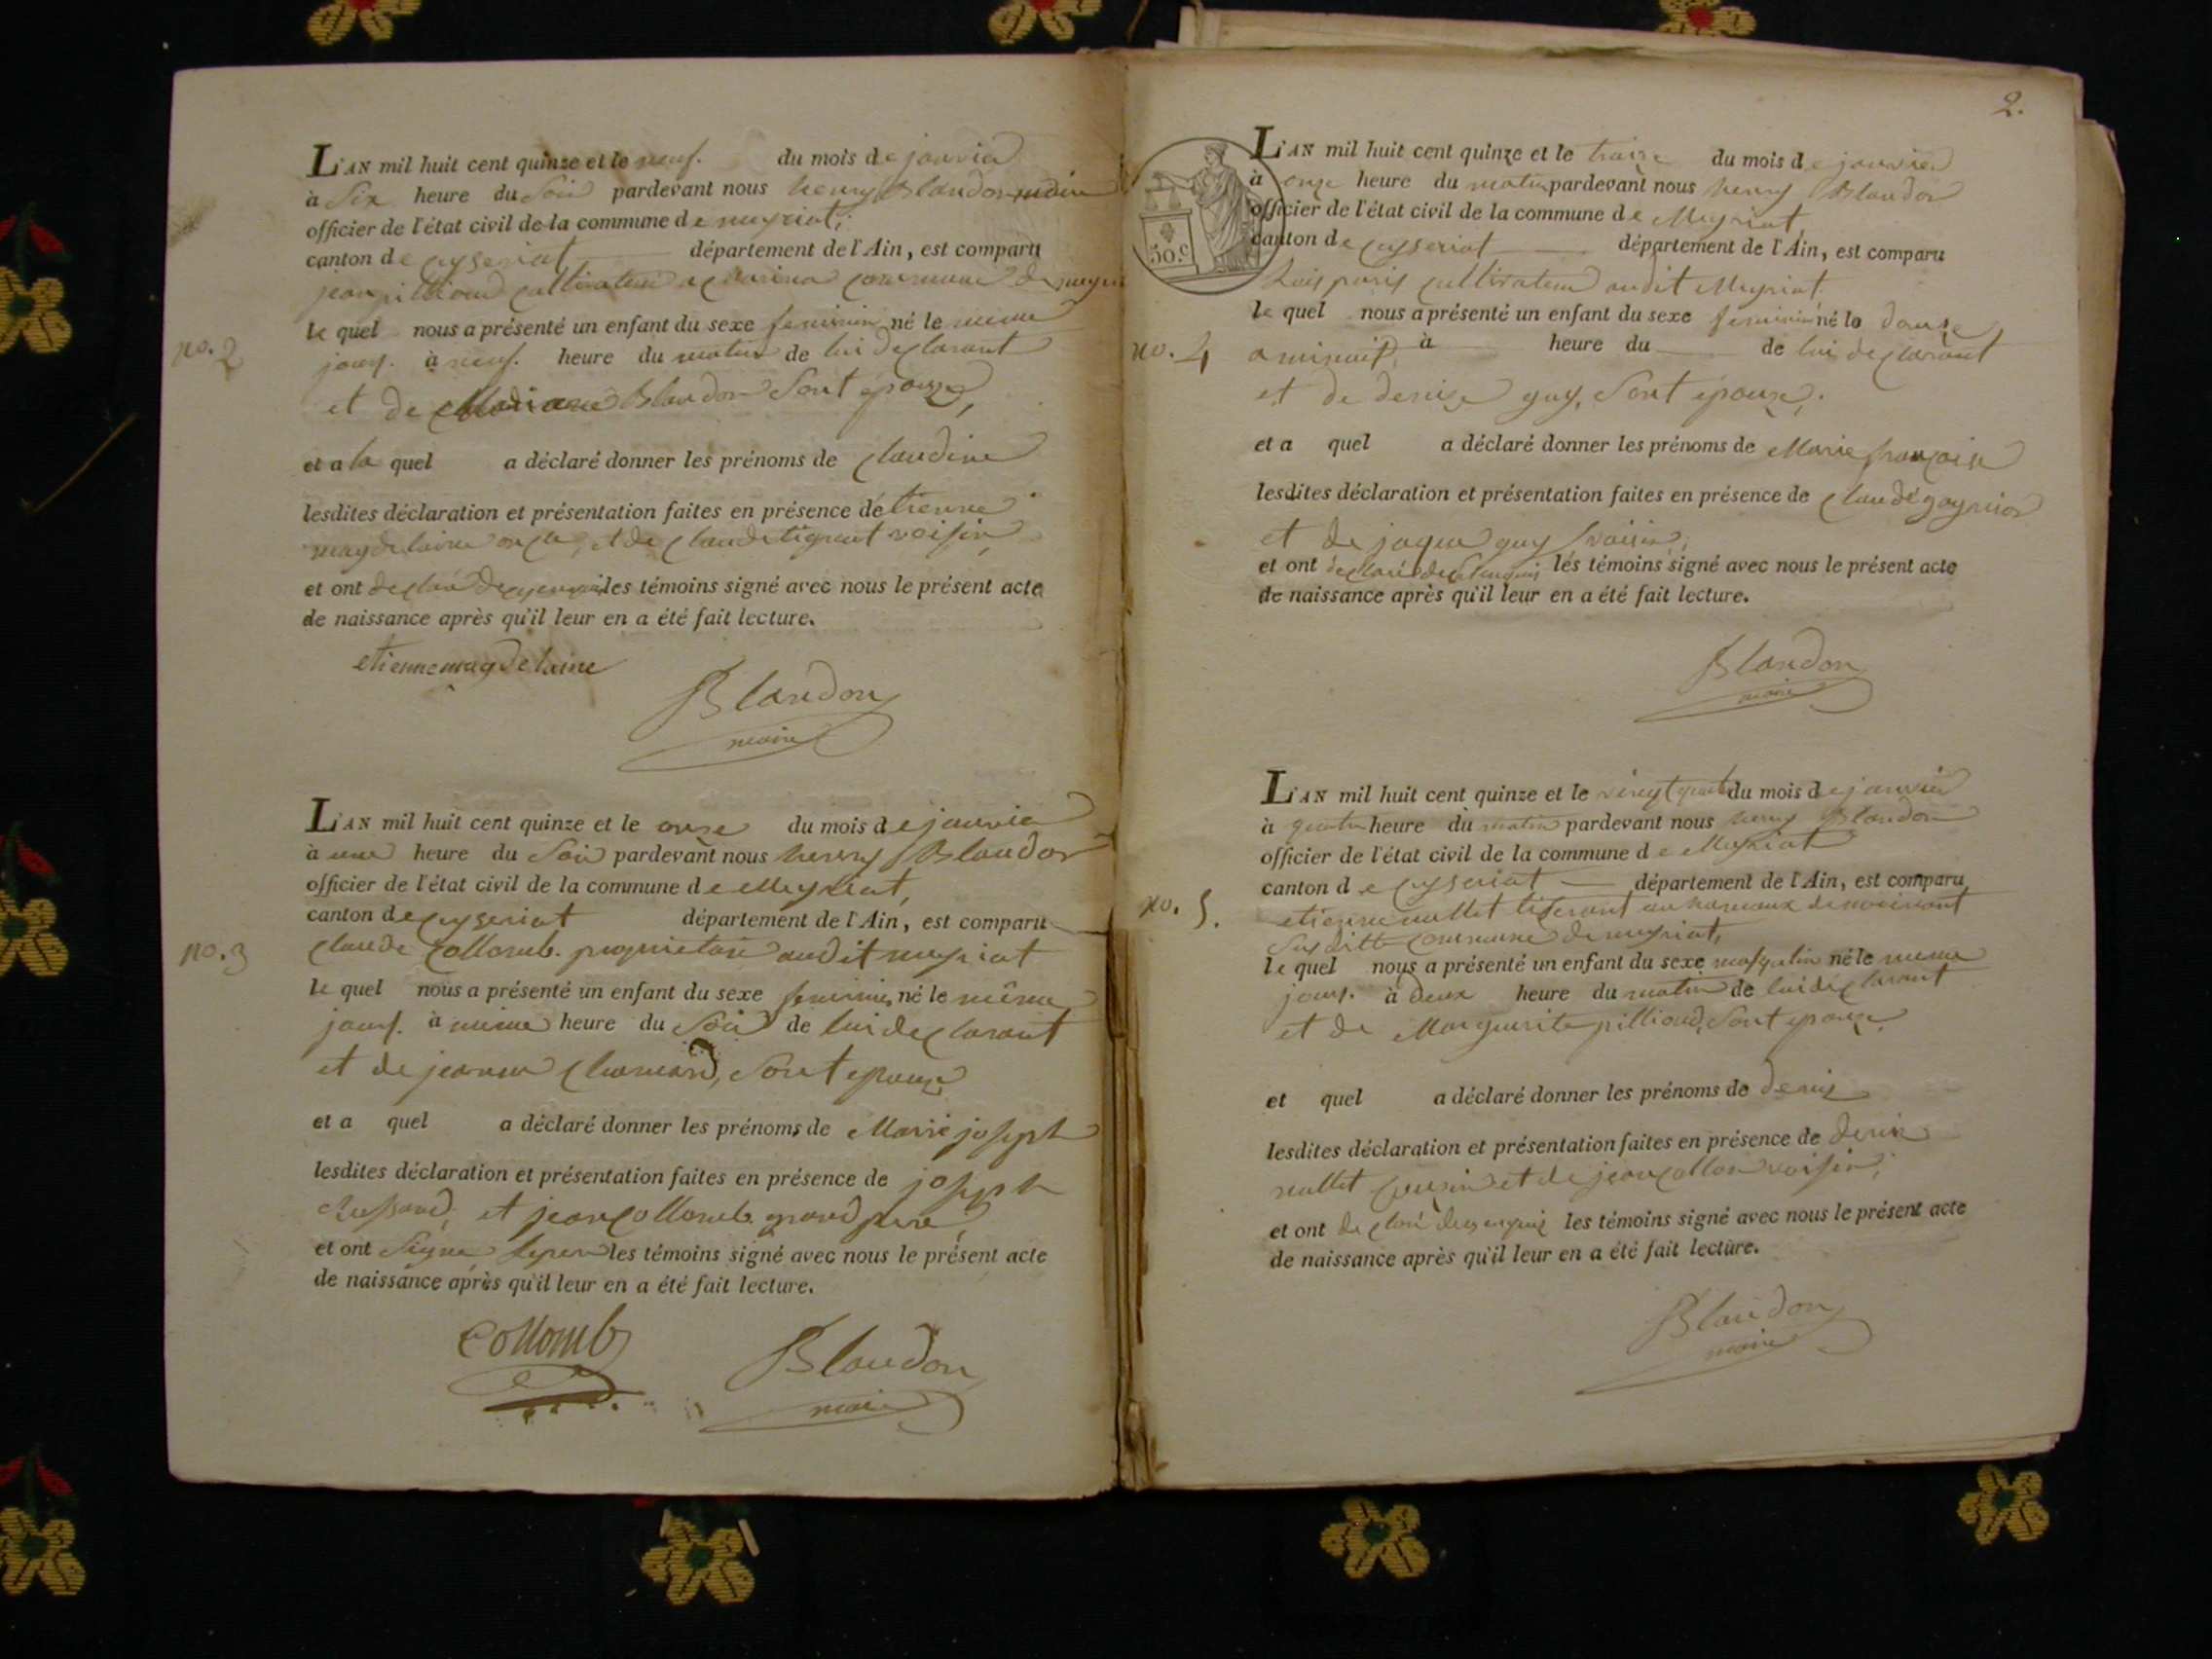 L'AN mil huit cent quinze et le neuf. du mois de janvier
à Six heure du Soir pardevant nous henry Blandon maire
officier de l'état civil de la commune de meyriat,
canton de ceyseriat département de l'Ain, est comparu
jean pillioud cultivateur a commune de
le quel nous a présenté un enfant du sexe feminin né le meme
no. 2
jour. à neuf. heure du matin de lui declarant
et de Blandon Sont epoux,
et a la quel a déclaré donner les prénoms de claudine
lesdites déclaration et présentation faites en présence détienne
magdelaine oncle, et de claude tignat voisin
et ont declaré les témoins signé avec nous le présent acte
de naissance après qu'il leur en a été fait lecture.
etienne magdelaine
Blandon
maire
L'AN mil huit cent quinze et le onze du mois de janvier
à une heure du Soir pardevant nous henry Blandon
officier de l'état civil de la commune de Meyriat,
canton de ceyseriat département de l'Ain, est comparu
no. 3
claude Collomb. proprietaire audit meyriat
le quel nous a présenté un enfant du sexe feminin né le même
jour. à meme heure du Soir de lui declarant
et de jeanne chamard, Sont epoux
et a quel a déclaré donner les prénoms de Marie joseph
lesdites déclaration et présentation faites en présence de joseph
et jean Collomb grand pere
et ont Signé les témoins signé avec nous le présent acte
de naissance après qu'il leur en a été fait lecture.
Collomb
Blandon
maire
2.
50.c
L'AN mil huit cent quinze et le traize du mois de janvier
à onze heure du matin pardevant nous henry Blandon
officier de l'état civil de la commune de Meyriat,
canton de ceyseriat département de l'Ain, est comparu
Louis paris cultivateur audit Meyriat
le quel nous a présenté un enfant du sexe feminin né le douze
no. 4
a minuit, à heure du de lui declarant
et de denise guy, Sont epoux,
et a quel a déclaré donner les prénoms de Marie françoise
lesdites déclaration et présentation faites en présence de claude
et de jaque guy voisin,
et ont declaré les témoins signé avec nous le présent acte
de naissance après qu'il leur en a été fait lecture.
Blandon
maire
L'AN mil huit cent quinze et le vingt quatre du mois de janvier
à quatre heure du matin pardevant nous henry Blandon
officier de l'état civil de la commune de Meyriat
canton de ceyseriat département de l'Ain, est comparu
no. 5.
etienne mallet tiserant au hameaux de
Susditte commune de meyriat,
le quel nous a présenté un enfant du sexe masqulin né le meme
jour. à deux heure du matin de lui declarant
et de Marguerite pillioud, Sont epoux
et quel a déclaré donner les prénoms de denis
lesdites déclaration et présentation faites en présence de denis
mallet cousin et de jean collon voisin,
et ont declaré les témoins signé avec nous le présent acte
de naissance après qu'il leur en a été fait lecture.
Blandon
maire